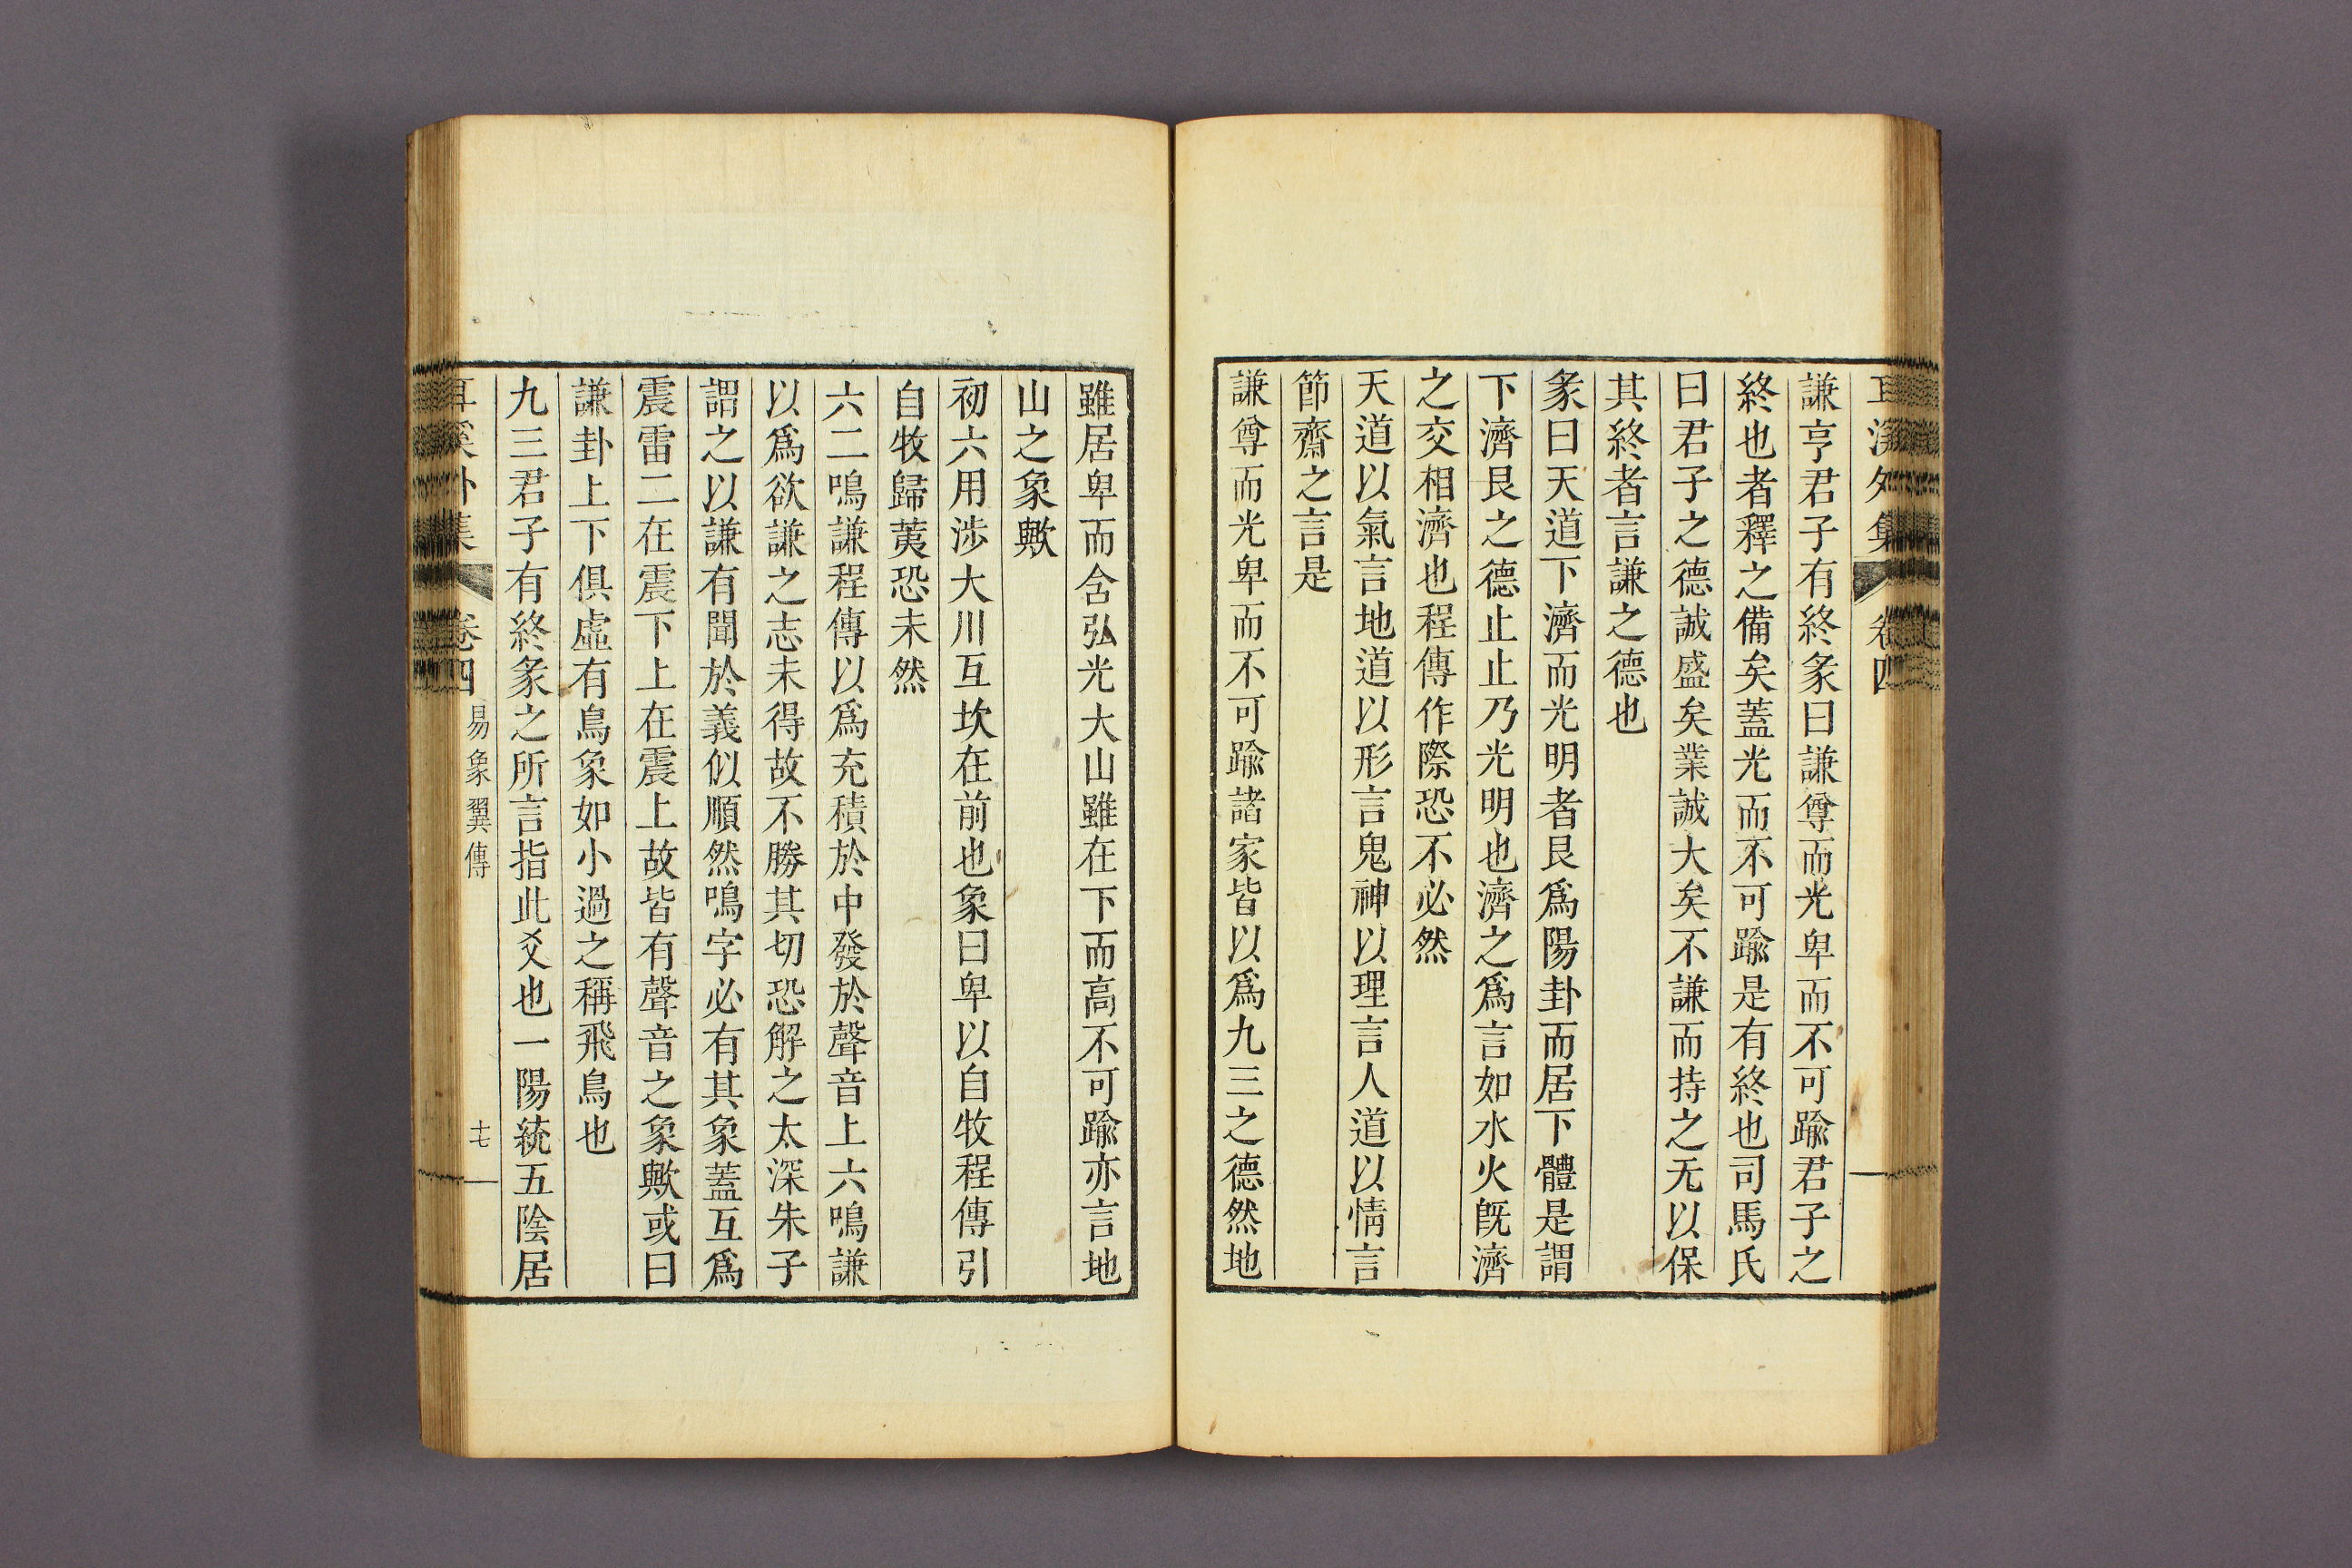 耳溪外集 卷四
謙亨君子有終彖曰謙尊而光卑而不可踰君子之
終也者釋之備矣蓋光而不可踰是有終也司馬氏
曰君子之德誠盛矣業誠大矣不謙而持之无以保
其終者言謙之德也
彖曰天道下濟而光明者艮爲陽卦而居下體是謂
下濟艮之德止止乃光明也濟之爲言如水火旣濟
之交相濟也程傳作際恐不必然
天道以氣言地道以形言鬼神以理言人道以情言
節齋之言是
謙尊而光卑而不可踰諸家皆以爲九三之德然地
雖居卑而含弘光大山雖在下而高不可踰亦言地
山之象歟
初六用涉大川互坎在前也象曰卑以自牧程傳引
自牧歸荑恐未然
六二鳴謙程傳以爲充積於中發於聲音上六鳴謙
以爲欲謙之志未得故不勝其切恐解之太深朱子
謂之以謙有聞於義似順然鳴字必有其象蓋互爲
震雷二在震下上在震上故皆有聲音之象歟或曰
謙卦上下俱虛有鳥象如小過之稱飛鳥也
九三君子有終彖之所言指此爻也一陽統五陰居
耳溪外集 卷四 易象翼傳 十七